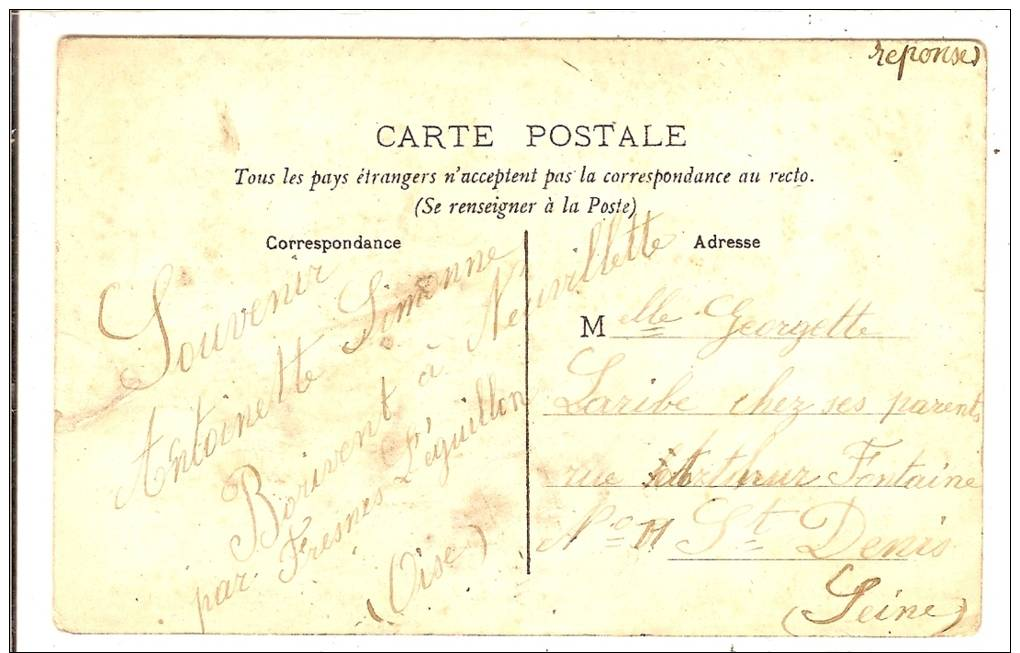 reponses
CARTE POSTALE
Tous les pays étrangers n'acceptent pas la correspondance au recto.
(Se renseigner à la Poste)
Correspondance
Souvenir
Antoinette Simonne
Borivent à Neuvillette
par Fresnes-L'éguillon
(Oise)
Adresse
Melle Georgette
Laribe chez ses parents
rue Arthur Fontaine
No 11 St Denis
(Seine)